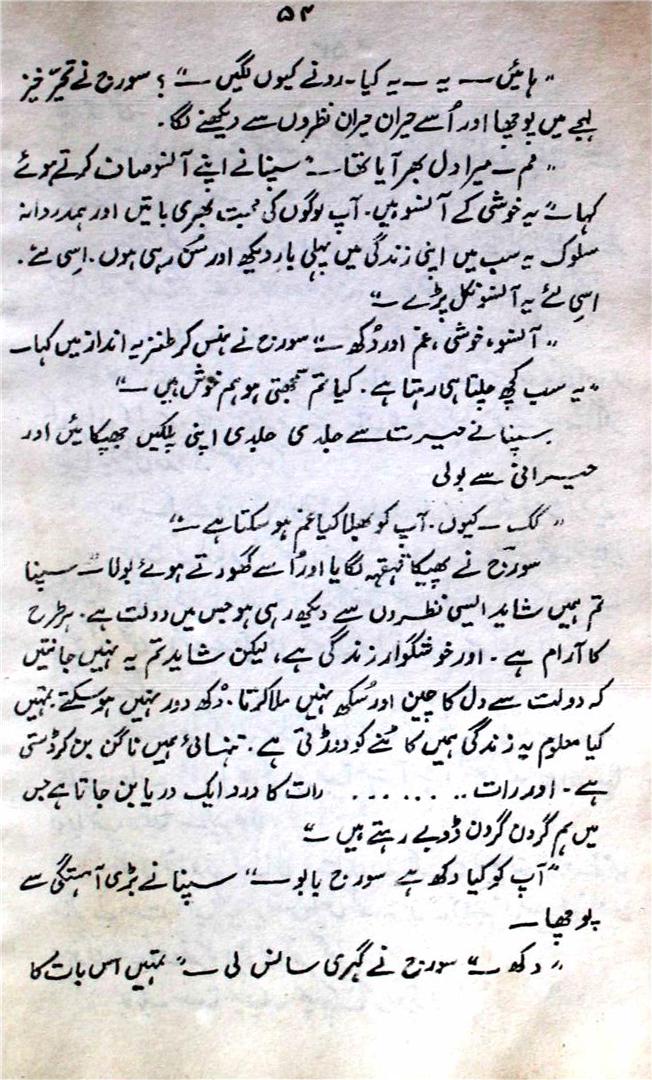 ۵۴
”ہائیں — یہ — یہ کیا۔ رونے کیوں لگیں —“؟ سورج نے تحیّر خیز
لہجے میں پوچھا اور اُسے حیران حیران نظروں سے دیکھنے لگا۔
”مم — میرا دل بھر آیا تھا —“ سپنا نے اپنے آنسو صاف کرتے ہوئے
کہا —“ یہ خوشی کے آنسو ہیں۔ آپ لوگوں کی محبت بھری باتیں اور ہمدردانہ
سلوک یہ سب میں اپنی زندگی میں پہلی بار دیکھ اور سُن رہی ہوں۔ اِسی لئے۔
اسی لئے یہ آنسو نکل پڑے —“
”آنسو، خوشی، غم اور دُکھ —“ سورج نے ہنس کر طنزیہ انداز میں کہا —
”یہ سب کچھ چلتا ہی رہتا ہے۔ کیا تم سمجھتی ہو ہم خوش ہیں —“
سپنا نے حیرت سے جلدی جلدی اپنی پلکیں جھپکائیں اور
حیرانی سے بولی
”کک — کیوں۔ آپ کو بھلا کیا غم ہو سکتا ہے —“
سورج نے پھیکا قہقہہ لگایا اور اُسے گھورتے ہوئے بولا —“ سپنا
تم ہمیں شاید ایسی نظروں سے دیکھ رہی ہو جس میں دولت ہے۔ ہر طرح
کا آرام ہے۔ اور خوشگوار زندگی ہے، لیکن شاید تم یہ نہیں جانتیں
کہ دولت سے دل کا چین اور سُکھ نہیں ملا کرتا۔ دُکھ دور نہیں ہو سکتے۔ تمہیں
کیا معلوم یہ زندگی ہمیں کاٹنے کو دوڑتی ہے۔ تنہائی ہمیں ناگن بن کر ڈستی
ہے۔ اور رات ........ رات کا درد ایک دریا بن جاتا ہے جس
میں ہم گردن گردن ڈوبے رہتے ہیں —“
”آپ کو کیا دکھ ہے سورج بابو —“ سپنا نے بڑی آہستگی سے
پوچھا —
”دکھ —“ سورج نے گہری سانس لی —“ تمہیں اس بات کا